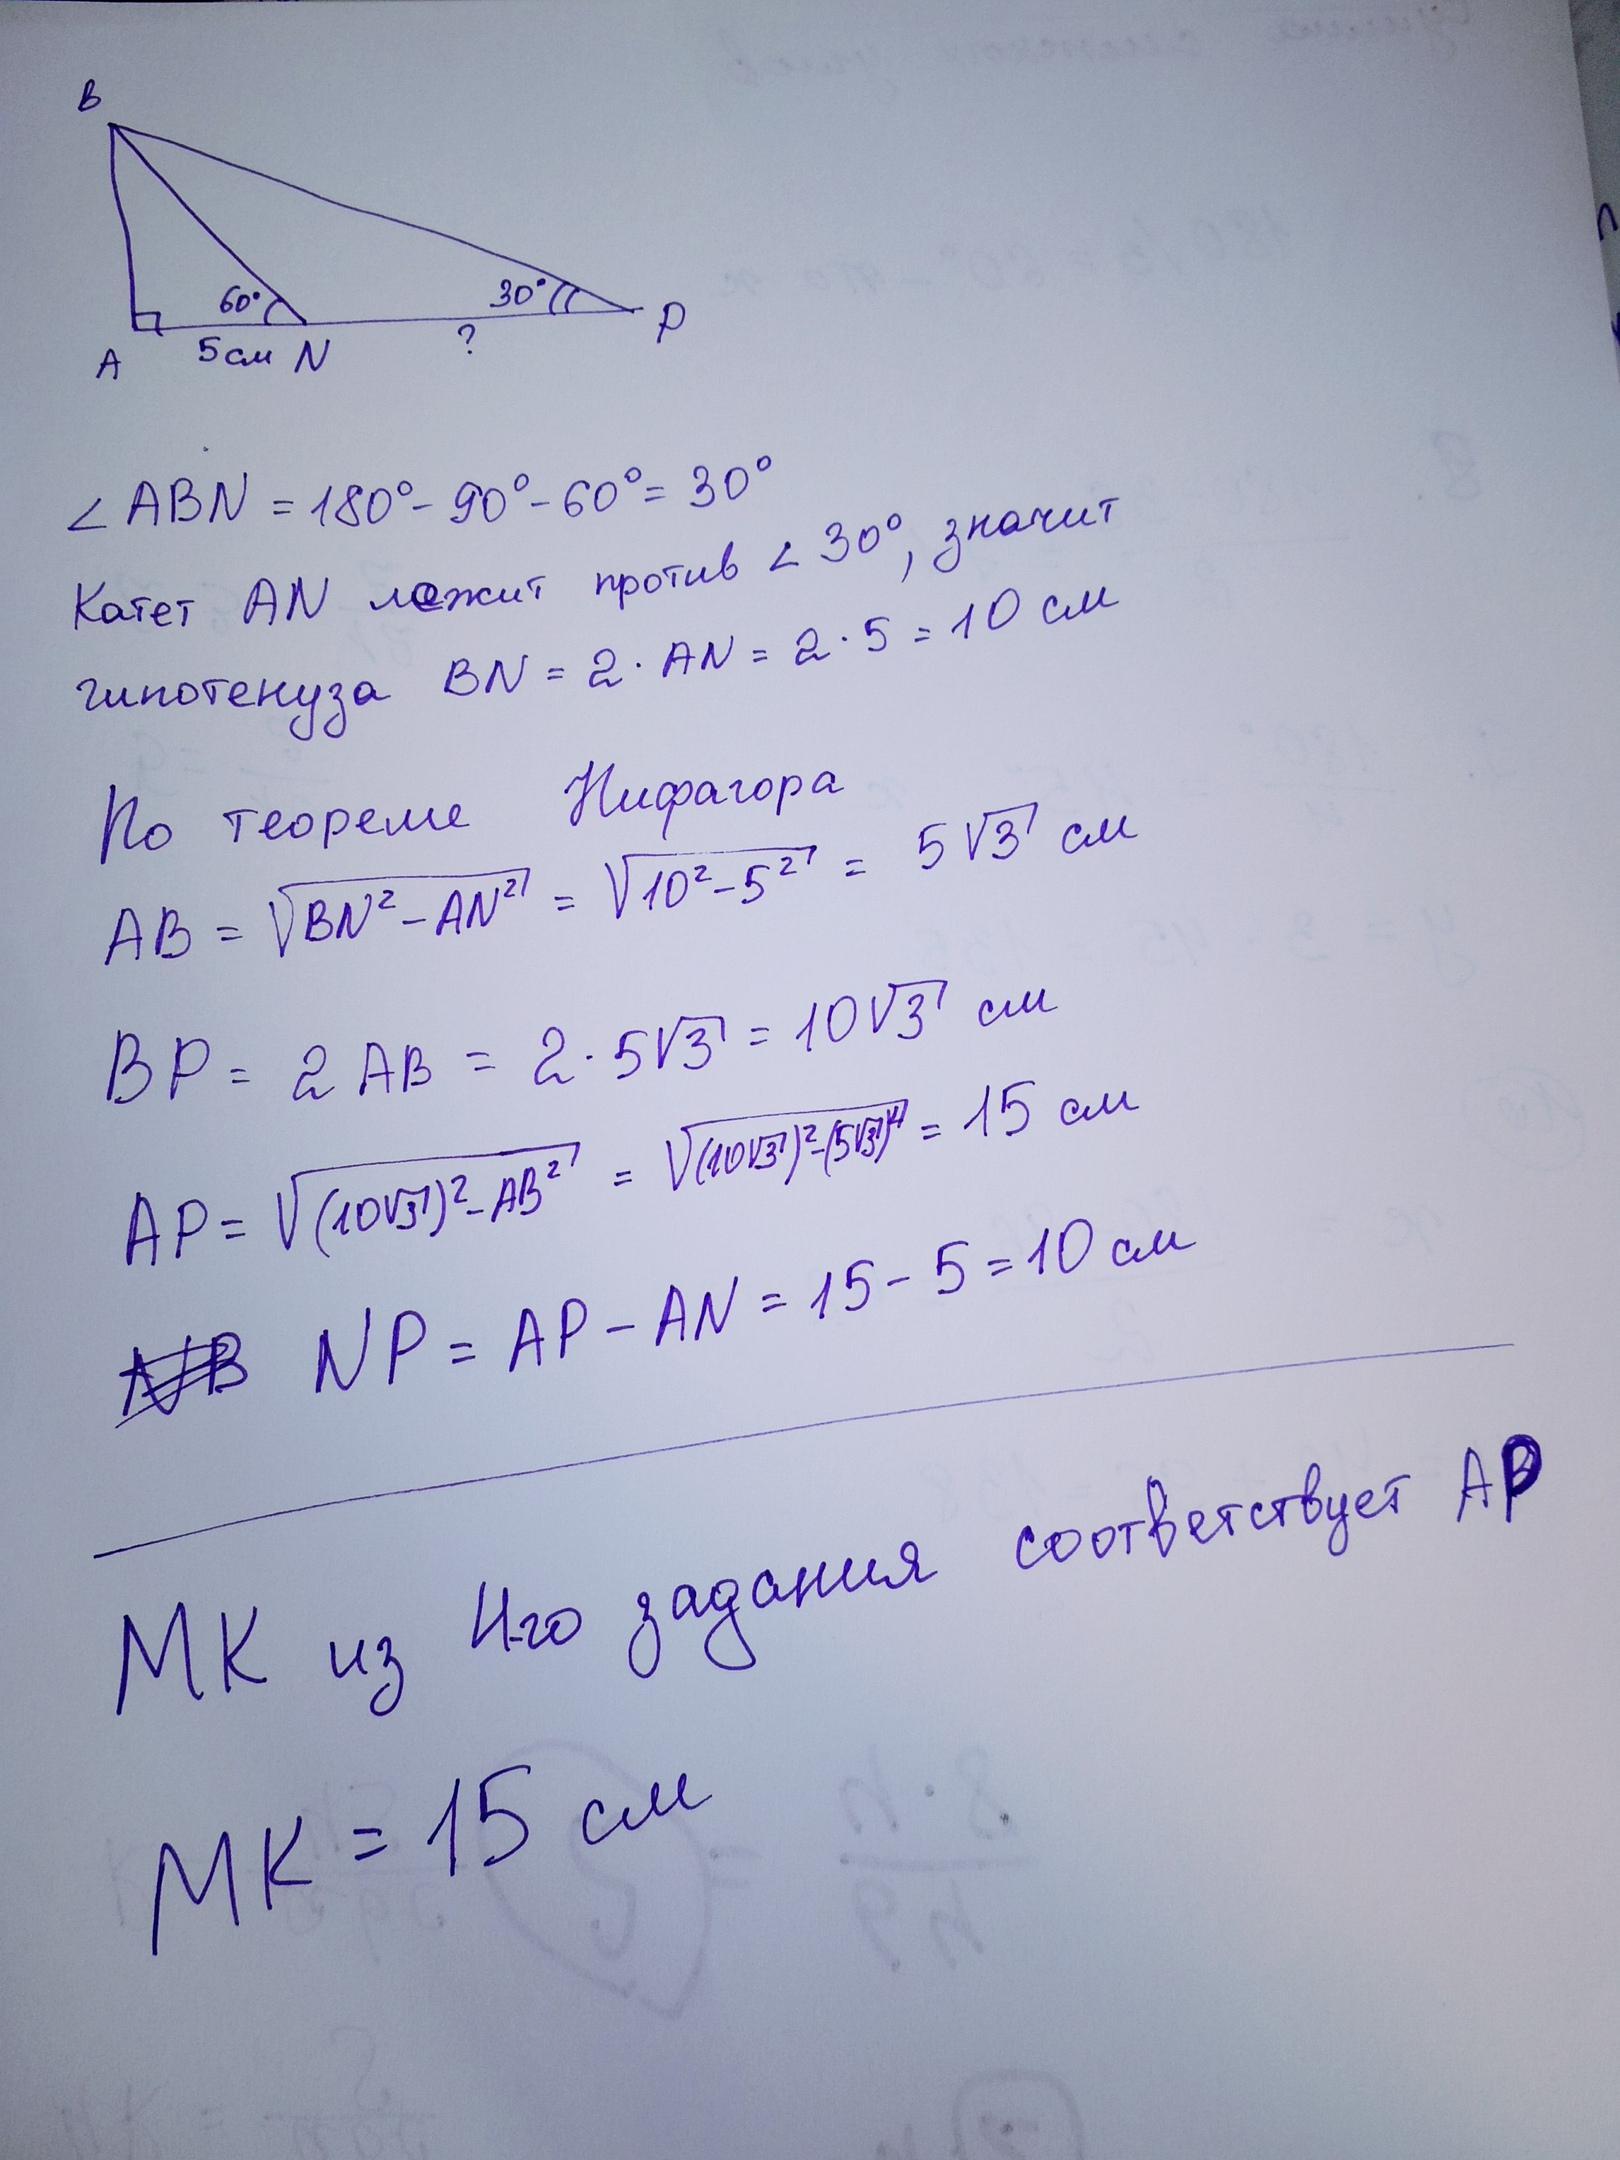 B
60°
30°
A
5 см
N
?
P
∠ ABN = 180° - 90° - 60° = 30°
Катет AN лежит против ∠ 30°, значит
гипотенуза BN = 2 · AN = 2 · 5 = 10 см
По теореме Пифагора
AB = √(BN² - AN²) = √(10² - 5²) = 5√3 см
BP = 2 AB = 2 · 5√3 = 10√3 см
AP = √((10√3)² - AB²) = √((10√3)² - (5√3)²) = 15 см
NP = AP - AN = 15 - 5 = 10 см
МК из 4-го задания соответствует AP
МК = 15 см